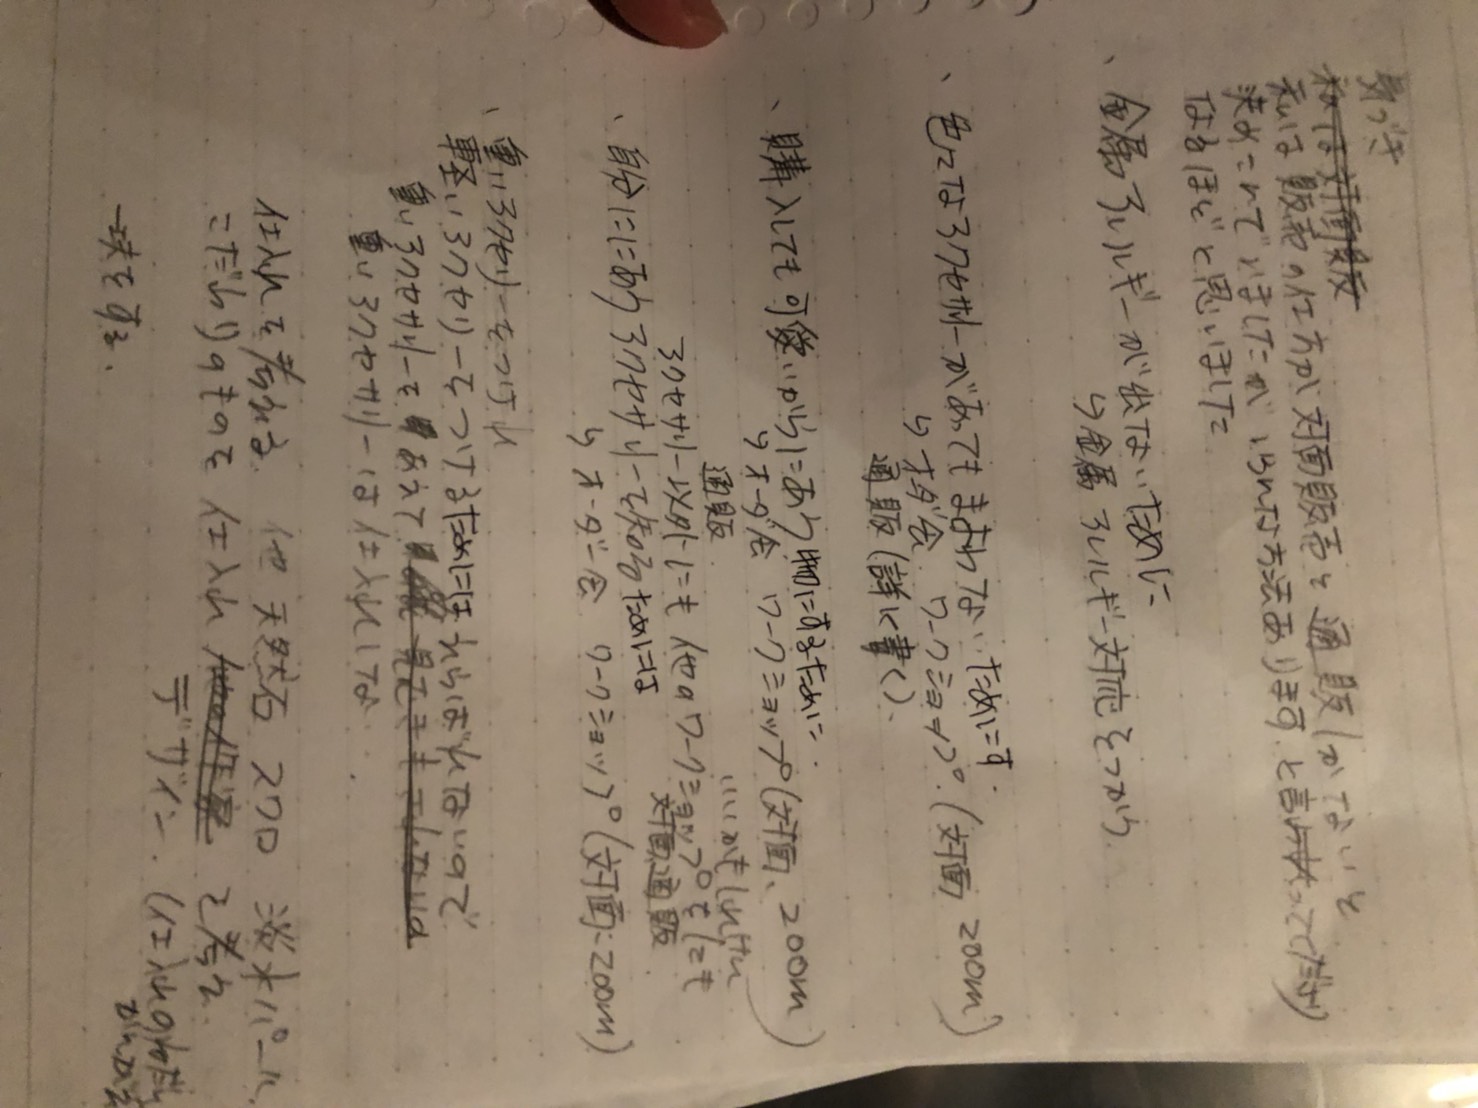 気づき
私は対面販
私は販売の仕方が対面販売と通販しかないと
決めこんでいましたがいろんな方法あります と言
なるほどと思いました
、金属アレルギーが出ないために
↳金属アレルギー対応をつかう
、色々なアクセサリーがあってもまよわないためにす.
↳オーダー会 ワークショップ.(対面 zoom)
通販(詳く書く)
、購入しても可愛いからにあう物にするために.
↳オーダー会 ワークショップ(対面、zoom)
通販
アクセサリー以外にも他のワークショップをしても
いいかもしれない
対面通販
、自分ににあうアクセサリーを知るためには
↳オーダー会 ワークショップ(対面=zoom)
、重いアクセサリーをつけ
重いアクセサリーをつけるためには
重いアクセサリーをあえて
重いアクセサリーは仕入れしな
仕入れを考える. 天然石 スワロ 淡水パール
こだわりのものを仕入れ と考え
デザイン.(仕入れの
をする.